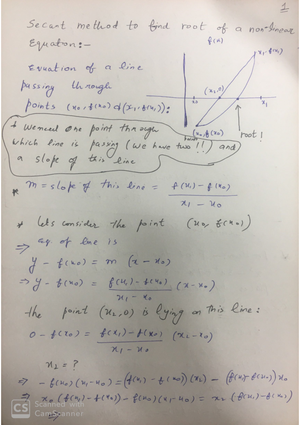 1
Secant method to find root of a non-linear
Equation:-
f(x)
Equation of a line
passing through
points (x0, f(x0)) & (x1, f(x1)):
x1, f(x1)
(x2,0)
x0
x1
x0, f(x0)
root 1
* we need one point through
which line is passing (we have two!!) and
a slope of this line
* m = slope of this line = f(x1) - f(x0) / x1 - x0
* lets consider the point (x0, f(x0))
⇒ eq. of line is
y - f(x0) = m (x - x0)
⇒ y - f(x0) = f(x1) - f(x0) / x1 - x0 (x - x0)
the point (x2, 0) is lying on this line:
0 - f(x0) = f(x1) - f(x0) / x1 - x0 (x2 - x0)
x2 = ?
⇒ - f(x0) (x1 - x0) = (f(x1) - f(x0)) (x2) - (f(x1) - f(x0)) x0
⇒ x0 (f(x1) - f(x0)) - f(x0) (x1 - x0) = x2 (f(x1) - f(x0))
CS Scanned with
CamScanner